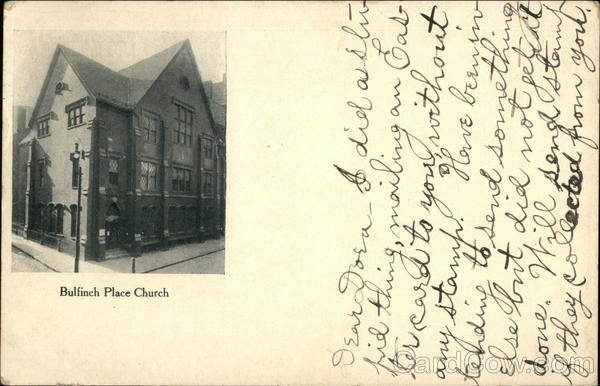 Bulfinch Place Church
Dear Dora - I did a stu-
pid thing, mailing an Eas-
ter card to you, without
any stamp. Have been in-
tending to send something
else but did not get it
done. Will send stamp
if they collected from you.
CardCow.com